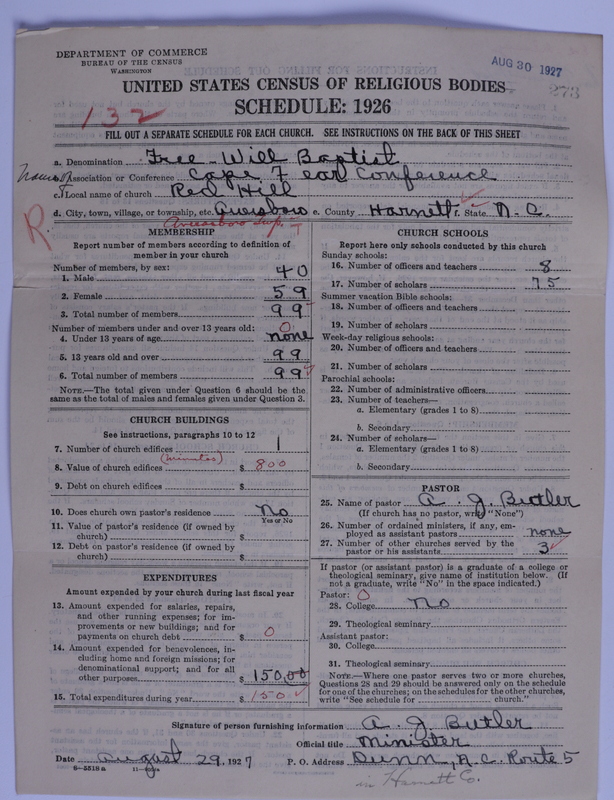 DEPARTMENT OF COMMERCE
BUREAU OF THE CENSUS
WASHINGTON
AUG 30 1927
273
UNITED STATES CENSUS OF RELIGIOUS BODIES
SCHEDULE: 1926
132
FILL OUT A SEPARATE SCHEDULE FOR EACH CHURCH. SEE INSTRUCTIONS ON THE BACK OF THIS SHEET
a. Denomination Free-Will Baptist
Name of Association or Conference Cape Fear Conference
c. Local name of church Red Hill
d. City, town, village, or township, etc. e. County Harnett f. State N.C.
Averasboro Twp.
R
MEMBERSHIP
Report number of members according to definition of
member in your church
Number of members, by sex:
1. Male 40
2. Female 59
3. Total number of members 99
Number of members under and over 13 years old: 0
4. Under 13 years of age none
5. 13 years old and over 99
6. Total number of members 99
NOTE.—The total given under Question 6 should be
the same as the total of males and females given under Question 3.
CHURCH BUILDINGS
See instructions, paragraphs 10 to 12
7. Number of church edifices 1
(minutes)
8. Value of church edifices $ 800
9. Debt on church edifices $
10. Does church own pastor's residence No
Yes or No
11. Value of pastor's residence (if owned by
church) $
12. Debt on pastor's residence (if owned by
church) $
EXPENDITURES
Amount expended by your church during last fiscal year
13. Amount expended for salaries, repairs,
and other running expenses; for im-
provements or new buildings; and for
payments on church debt $ 0
14. Amount expended for benevolences, in-
cluding home and foreign missions; for
denominational support; and for all
other purposes $ 150.00
15. Total expenditures during year $ 150
CHURCH SCHOOLS
Report here only schools conducted by this church
Sunday schools:
16. Number of officers and teachers 8
17. Number of scholars 75
Summer vacation Bible schools:
18. Number of officers and teachers
19. Number of scholars
Week-day religious schools:
20. Number of officers and teachers
21. Number of scholars
Parochial schools:
22. Number of administrative officers
23. Number of teachers—
a. Elementary (grades 1 to 8)
b. Secondary
24. Number of scholars—
a. Elementary (grades 1 to 8)
b. Secondary
PASTOR
25. Name of pastor A. J. Butler
(If church has no pastor, write "None")
26. Number of ordained ministers, if any, em-
ployed as assistant pastors none
27. Number of other churches served by the
pastor or his assistants 3
If pastor (or assistant pastor) is a graduate of a college or
theological seminary, give name of institution below. (If
not a graduate, write "No" in the space indicated.)
Pastor: 0
28. College No
29. Theological seminary
Assistant pastor:
30. College
31. Theological seminary
NOTE.—Where one pastor serves two or more churches,
Questions 28 and 29 should be answered only on the schedule
for one of the churches; on the schedules for the other churches,
write "See schedule for church."
Signature of person furnishing information A. J. Butler
Official title Minister
Date August 29, 1927 P. O. Address Dunn, N.C. Route 5
in Harnett Co.